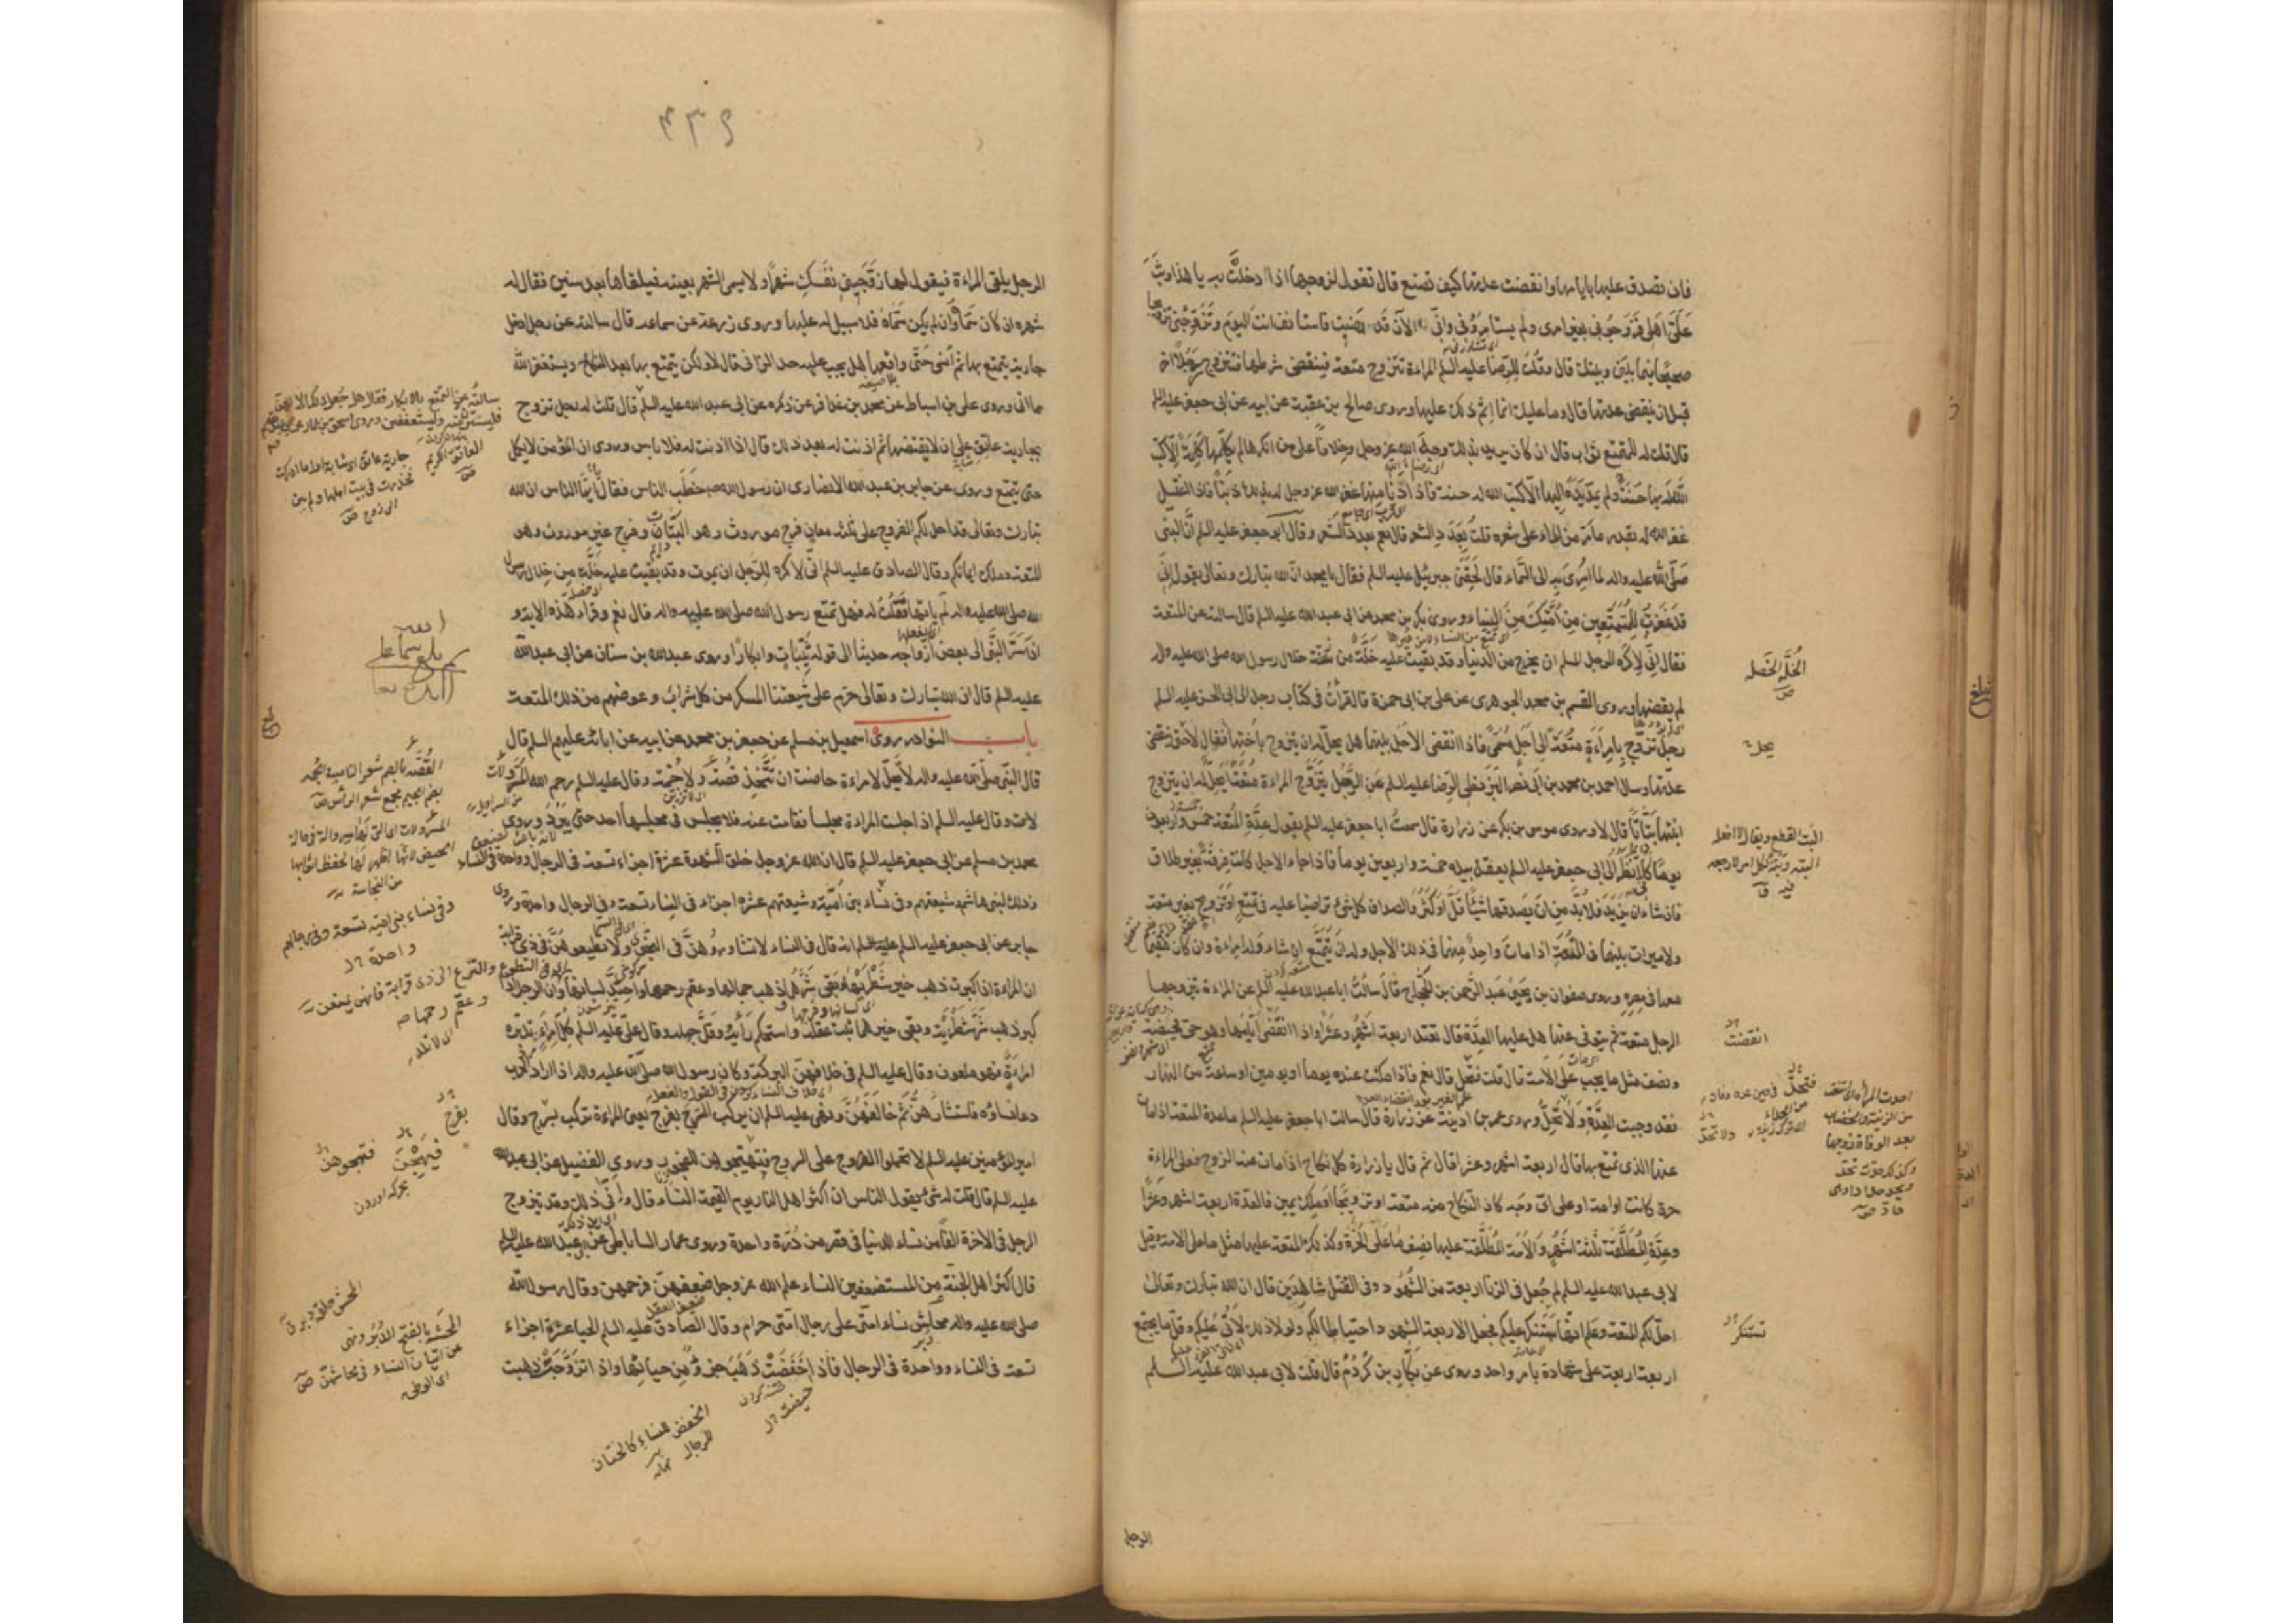 فان تصدق عليها بايامها وانقضت عدتها كيف تصنع قال تقول لزوجها اذا دخلت به يا هذا وثب
على اهلى فزوجونى بغير امرى ولم يستامرونى وانى الآن قد رضيت فاستانف انت اليوم وتزوجنى تزويجا
صحيحا فيما بينى وبينك قال وقلت للرضا عليه السلم المراءة تتزوج متعة فينقضى شرطها فتتزوج رجلا اخر
قبل ان ينقضى عدتها قال وما عليك انما اثم ذلك عليها وروى صالح بن عقبة عن ابيه عن ابى جعفر عليه السلم
قال قلت له للمتمتع ثواب قال ان كان يريد بذلك وجه الله عز وجل وخلافا على من انكرها لم يكلمها كلمة الا كتب
الله له بها حسنة ولم يمد يده اليها الا كتب الله له حسنة فاذا دنا منها غفر الله عز وجل له بذلك ذنبا فاذا اغتسل
غفر الله له بقدر ما مر من الماء على شعره قلت بعدد الشعر قال نعم بعدد الشعر وقال ابو جعفر عليه السلم ان النبى
صلى الله عليه واله لما اسرى به الى السماء قال لحقنى جبرئيل عليه السلم فقال يا محمد ان الله تبارك وتعالى يقول انى
قد غفرت للمتمتعين من امتك من النساء وروى بكر بن محمد عن ابى عبد الله عليه السلم قال سالته عن المتعة
فقال انى لاكره للرجل المسلم ان يخرج من الدنيا وقد بقيت عليه خلة من خلال رسول الله صلى الله عليه واله
لم يقضها وروى القسم بن محمد الجوهرى عن على بن ابى حمزة قال قرأت فى كتاب رجل الى ابى الحسن عليه السلم
رجل تزوج بامراءة متعة الى اجل مسمى فاذا انقضى الاجل بينهما هل يحل له ان يتزوج باختها فقال لا حتى تنقضى
عدتها وسال احمد بن محمد بن ابى نصر البزنطى الرضا عليه السلم عن الرجل يتزوج المراءة متعة ايحل له ان يتزوج
ابنتها بتاتا قال لا وروى موسى بن بكر عن زرارة قال سمعت ابا جعفر عليه السلم يقول عدة المتعة خمس واربعون
يوما كانى انظر الى ابى جعفر عليه السلم يعقد بيده خمسة واربعين يوما فاذا جاء الاجل كانت فرقة بغير طلاق
فان شاء ان يزيد فلا بد من ان يصدقها شيئا قل او كثر والصداق كل شئ تراضيا عليه فى تمتع او تزوج بغير متعة
ولا ميراث بينهما فى المتعة اذا مات واحد منهما فى ذلك الاجل وله ان يتمتع ان شاء وله امراءة وان كان مقيما
معها فى مصره وروى صفوان بن يحيى عن عبد الرحمن بن الحجاج قال سالت ابا عبد الله عليه السلم عن المراءة يتزوجها
الرجل متعة ثم يتوفى عنها هل عليها العدة قال تعتد اربعة اشهر وعشرا واذا انقضى ايامها وهو حى فحيضة
ونصف مثل ما يجب على الامة قال قلت فتحد قال نعم فاذا مكثت عنده يوما او يومين او ساعة من النهار
فقد وجبت العدة ولا تحد وروى عمر بن اذينة عن زرارة قال سالت ابا جعفر عليه السلم ما عدة المتعة اذا مات
عنها الذى تمتع بها قال اربعة اشهر وعشرا قال ثم قال يا زرارة كل نكاح اذا مات عنه الزوج فعلى المراءة
حرة كانت او امة او على اى وجه كان النكاح منه متعة او تزويجا او ملك يمين فالعدة اربعة اشهر وعشرا
وعدة المطلقة ثلثة اشهر والامة المطلقة عليها نصف ما على الحرة وكذلك المتعة عليها مثل ما على الامة وقيل
لابى عبد الله عليه السلم لم جعل فى الزنا اربعة من الشهود وفى القتل شاهدين قال ان الله تبارك وتعالى
احل لكم المتعة وعلم انها ستنكر عليكم فجعل الاربعة الشهود احتياطا لكم ولولا ذلك لاتى عليكم وقل ما يجتمع
اربعة اربعة على شهادة بامر واحد وروى عن بكار بن كردم قال قلت لابى عبد الله عليه السلم
الخلة الخصلة
ص
انقضت
تستنكر
الرجل
٤٣٩
الرجل يلقى المراءة فيقول لها زوجينى نفسك شهرا ولا يسمى الشهر بعينه فيلقاها بعد سنين فقال له
شهره ان كان سماه وان لم يكن سماه فلا سبيل له عليها وروى زرعة عن سماعة قال سالته عن رجل ادخل
جارية يتمتع بها ثم انسى حتى واقعها هل يجب عليه حد الزانى قال لا ولكن يتمتع بها بعد النكاح ويستغفر الله
مما اتى وروى على بن اسباط عن محمد بن عذافر عن ذكره عن ابى عبد الله عليه السلم قال قلت له رجل تزوج
بجارية عاتق على ان لا يقتضها ثم اذنت له بعد ذلك قال اذا اذنت له فلا باس وروى ان المؤمن لا يكمل
حتى يتمتع وروى عن جابر بن عبد الله الانصارى ان رسول الله صلى خطب الناس فقال ايها الناس ان الله
تبارك وتعالى قد احل لكم الفروج على ثلثة معان فرج موروث وهو البتات وفرج غير موروث وهو
المتعة وملك ايمانكم وقال الصادق عليه السلم انى لاكره للرجل ان يموت وقد بقيت عليه خلة من خلال رسول
الله صلى الله عليه واله لم ياتها فقلت له فهل تمتع رسول الله صلى الله عليه واله قال نعم وقراء هذه الاية و
اذ اسر النبى الى بعض ازواجه حديثا الى قوله ثيبات وابكارا وروى عبد الله بن سنان عن ابى عبد الله
عليه السلم قال ان الله تبارك وتعالى حرم على شيعتنا المسكر من كل شراب وعوضهم من ذلك المتعة
باب النوادر روى اسمعيل بن مسلم عن جعفر بن محمد عن ابيه عن ابائه عليهم السلم قال
قال النبى صلى الله عليه واله لا يحل لامراءة حاضت ان تتخذ قصة ولا جمة وقال عليه السلم رحم الله المسرولات
وقال عليه السلم اذا جلست المراءة مجلسا فقامت عنه فلا يجلس فى مجلسها احد حتى يبرد وروى
محمد بن مسلم عن ابى جعفر عليه السلم قال ان الله عز وجل خلق الشهوة عشرة اجزاء تسعة فى الرجال وواحدة فى النساء
وذلك لبنى هاشم وشيعتهم وفى نساء بنى امية وشيعتهم عشرة اجزاء فى النساء تسعة وفى الرجال واحدة وروى
جابر عن ابى جعفر عليه السلم انه قال فى النساء لا تشاوروهن فى النجوى ولا تطيعوهن فى ذى قرابة
ان المراءة اذا كبرت ذهب خير شطريها وبقى شرهما ذهب جمالها وعقم رحمها واحتد لسانها وان الرجل اذا
كبر ذهب شر شطريه وبقى خيرهما ثبت عقله واستحكم رأيه وقل جهله وقال على عليه السلم كل امرء تدبره
امراءة فهو ملعون وقال عليه السلم فى خلافهن البركة وكان رسول الله صلى الله عليه واله اذا اراد الحرب
دعا نساؤه فاستشارهن ثم خالفهن ونهى عليه السلم ان يركب السرج بفرج يعنى المراءة تركب بسرج وقال
امير المؤمنين عليه السلم لا تحملوا الفروج على السروج فتهيجوهن للفجور وروى الفضيل عن ابى عبد الله
عليه السلم قال قلت له شئ يقول الناس ان اكثر اهل النار يوم القيمة النساء قال وانى ذلك وقد يتزوج
الرجل فى الاخرة الفا من نساء الدنيا فى قصر من درة واحدة وروى عمار الساباطى عن ابى عبد الله عليه السلم
قال اكثر اهل الجنة من المستضعفين النساء علم الله عز وجل ضعفهن فرحمهن وقال رسول الله
صلى الله عليه واله محاش نساء امتى على رجال امتى حرام وقال الصادق عليه السلم الحياء عشرة اجزاء
تسعة فى النساء وواحدة فى الرجال فاذا خفضت ذهب جزء من حيائها واذا تزوجت ذهبت
وفى نساء بنى امية تسعة وفى رجالهم
واحدة
بفرج
الخفض للنساء كالختان
للرجال